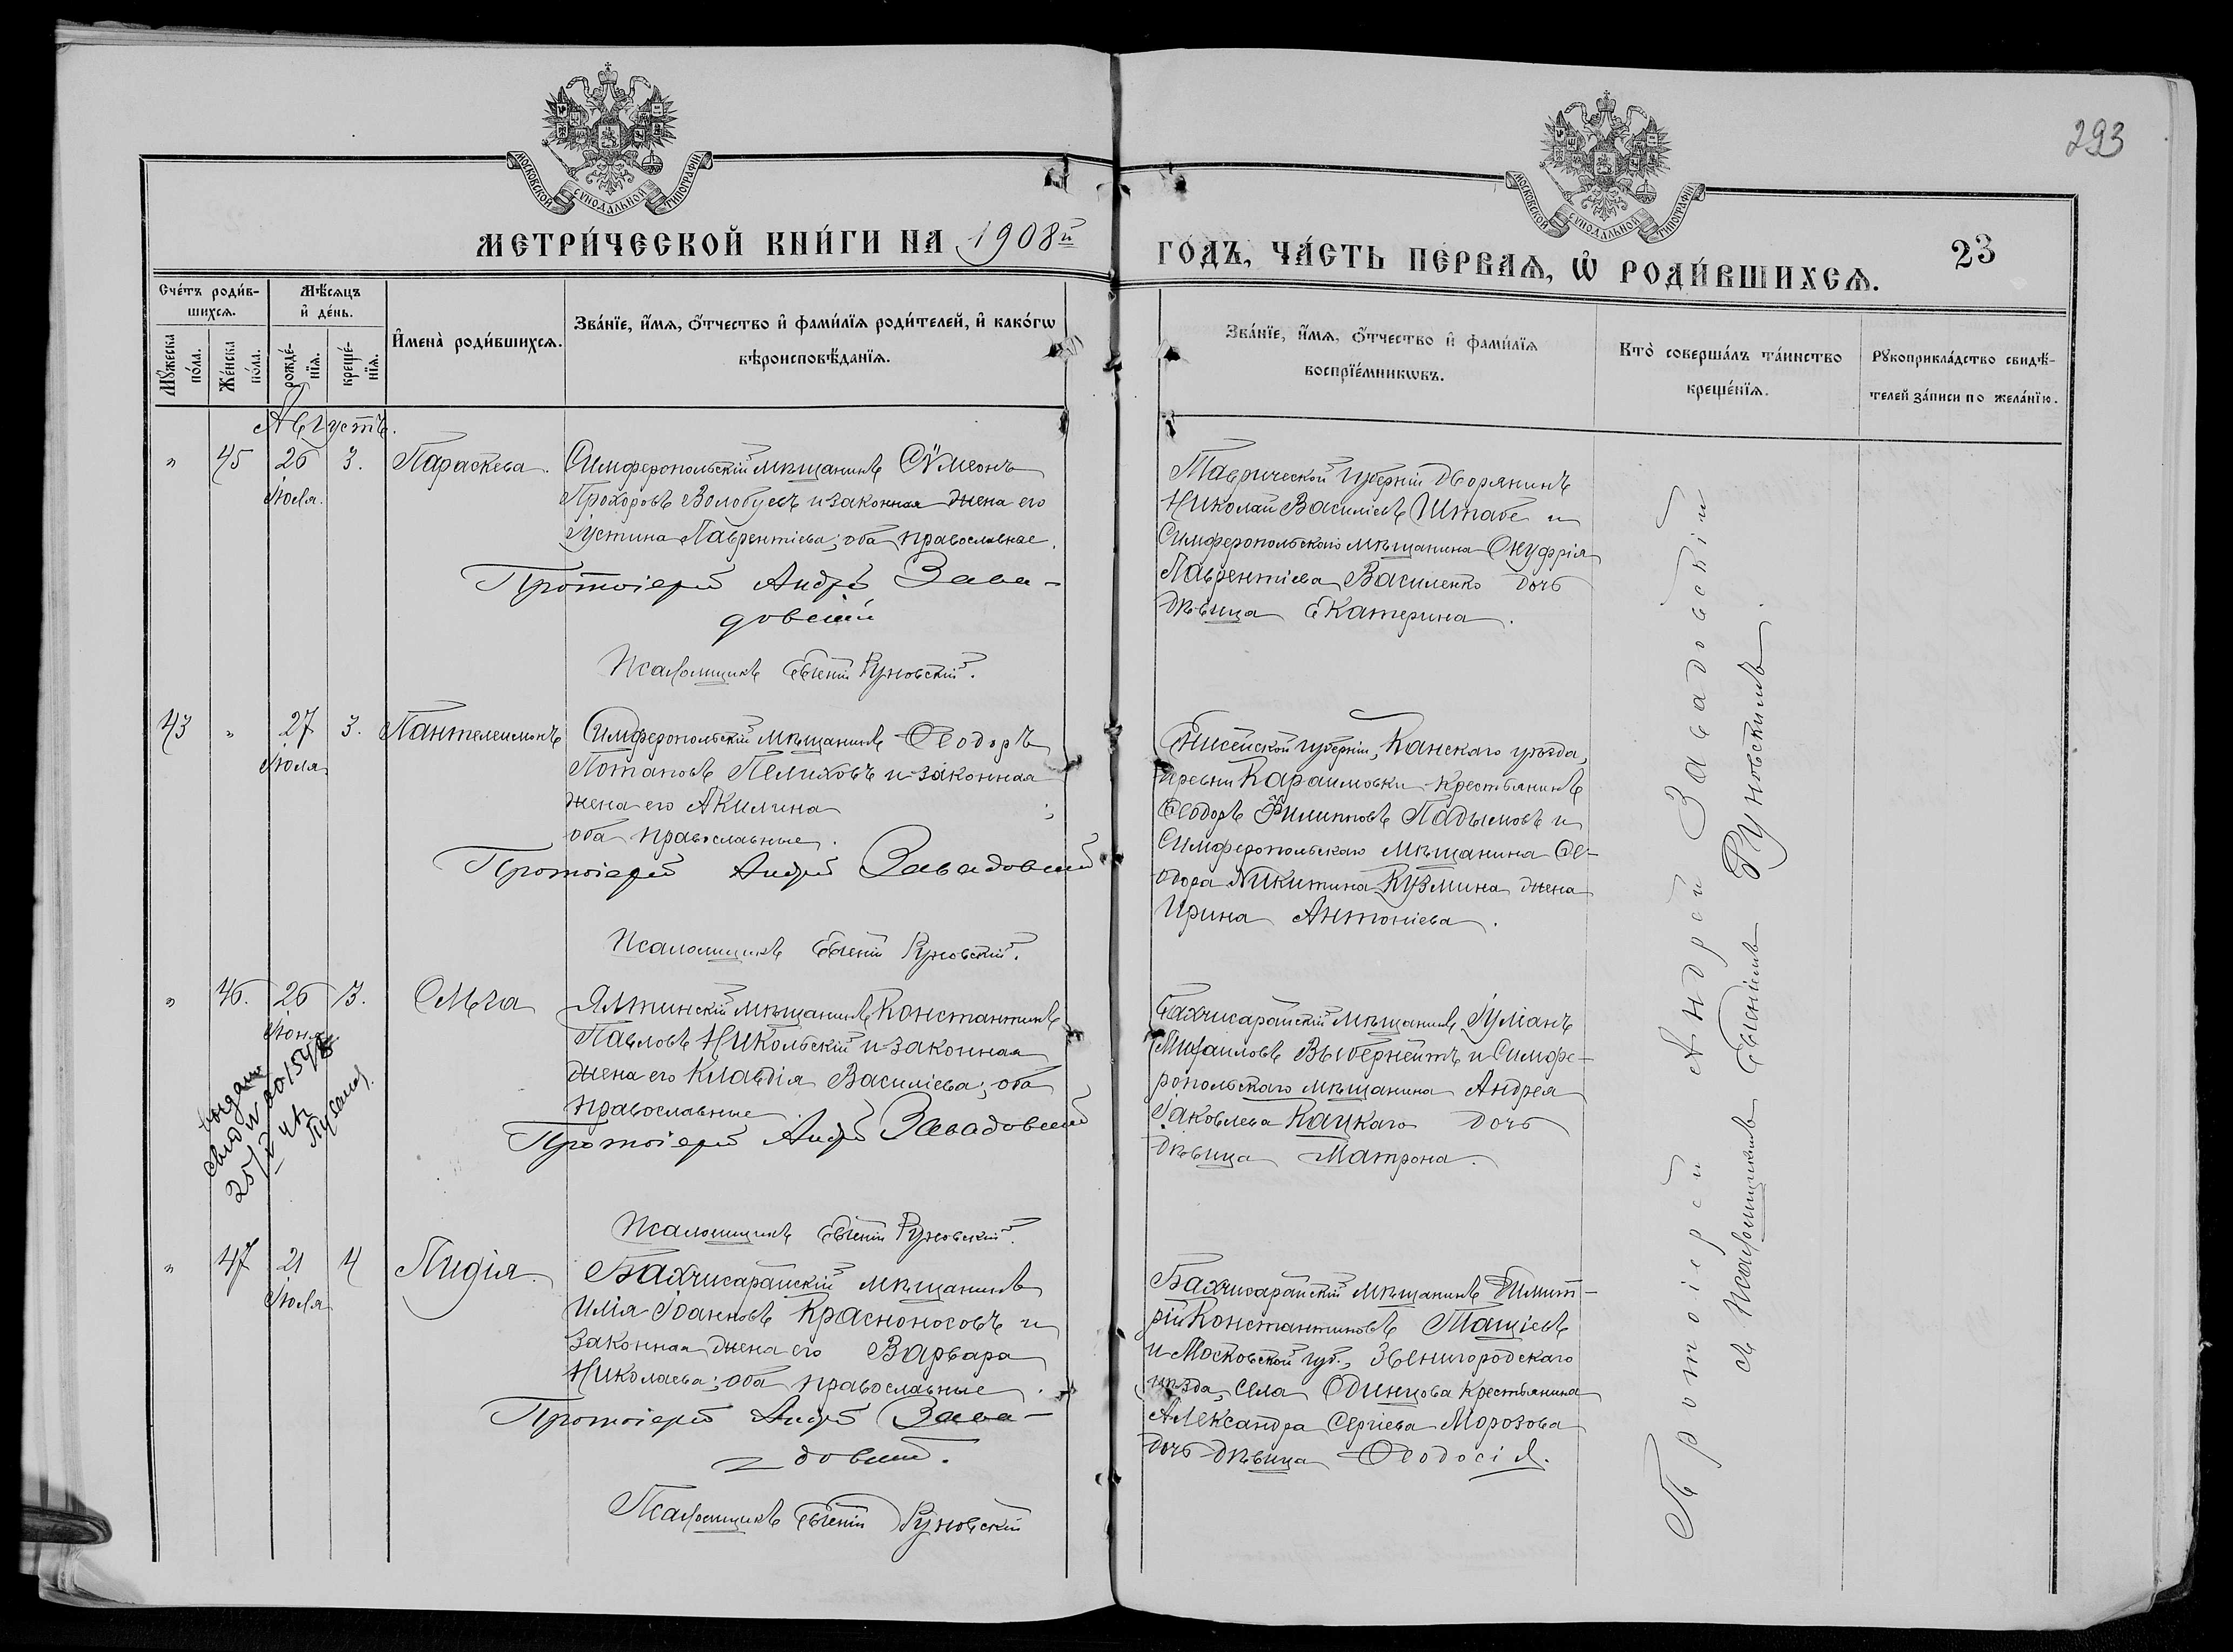 МОСКОВСКОЙ СѴНОДАЛЬНОЙ ТИПОГРАФІИ
МОСКОВСКОЙ СѴНОДАЛЬНОЙ ТИПОГРАФІИ
293
МЕТРИ́ЧЕСКОЙ КНИ́ГИ НА 1908й
ГО́ДЪ, ЧА́СТЬ ПЕ́РВАѦ, Ѡ҆ РОДИ́ВШИХСѦ.
23
Сче́тъ роди́в-
шихсѧ.
Мѣ́сѧцъ
и҆ де́нь.
Мꙋ́жеска
по́ла.
Же́нска
по́ла.
рожде́-
нїѧ.
креще́-
нїѧ.
И҆мена̀ роди́вшихсѧ.
Зва́нїе, и҆́мѧ, ѻ҆́тчество и҆ фами́лїѧ роди́телей, и҆ како́гѡ
вѣроисповѣ́данїѧ.
Зва́нїе, и҆́мѧ, ѻ҆́тчество и҆ фами́лїѧ
воспрїе́мникѡвъ.
Кто̀ соверша́лъ та́инство
креще́нїѧ.
Рꙋкоприкла́дство свидѣ́-
телей за́писи по жела́нїю.
Августъ.
" 45 26 3. Параскева.
Іюля.
Симферопольскій мѣщанинъ Сѵмеонъ
Прохоровъ Волобуевъ и законная жена его
Іустина Лаврентіева; оба православные.
Протоіерей Андрей Зава-
довскій
Псаломщикъ Евгеній Руновскій.
Таврической губерніи дворянинъ
Николай Василіевъ Штабе и
Симферопольскаго мѣщанина Онуфрія
Лаврентіева Василенко дочь
дѣвица Екатерина.
43 " 27 3. Пантелеимонъ
Іюля
Симферопольскій мѣщанинъ Ѳеодоръ
Потаповъ Пелиховъ и законная
жена его Акилина ;
оба православные.
Протоіерей Андрей Завадовскій
Псаломщикъ Евгеній Руновскій.
Енисейской губерніи, Канскаго уѣзда,
деревни Караимовки крестьянинъ
Ѳеодоръ Филипповъ Ладымовъ и
Симферопольскаго мѣщанина Ѳе-
одора Никитина Кузмина жена
Ирина Антоніева.
" 46. 26 3. Ольга
Іюня
выдано
25/
Ялтинскій мѣщанинъ Константинъ
Павловъ Никольскій и законная
жена его Клавдія Василіева; оба
православные.
Протоіерей Андрей Завадовскій
Псаломщикъ Евгеній Руновскій.
Бахчисарайскій мѣщанинъ Іуліанъ
Михаиловъ Выбернейтъ и Симфе-
ропольскаго мѣщанина Андрея
Іаковлева Кацкаго дочь
дѣвица Матрона.
" 47 21 4 Лидія.
Іюля
Бахчисарайскій мѣщанинъ
Илія Іоанновъ Красноносовъ и
законная жена его Варвара
Николаева; оба православные.
Протоіерей Андрей Зава-
довскій.
Псаломщикъ Евгеній Руновскій
Бахчисарайскій мѣщанинъ Димит-
рій Константиновъ Тащіевъ
и Московской губ., Звенигородскаго
уѣзда, села Одинцова крестьянина
Александра Сергіева Морозова
дочь дѣвица Ѳеодосія.
Протоіерей Андрей Завадовскій
съ псаломщикомъ Евгеніемъ Руновскимъ.